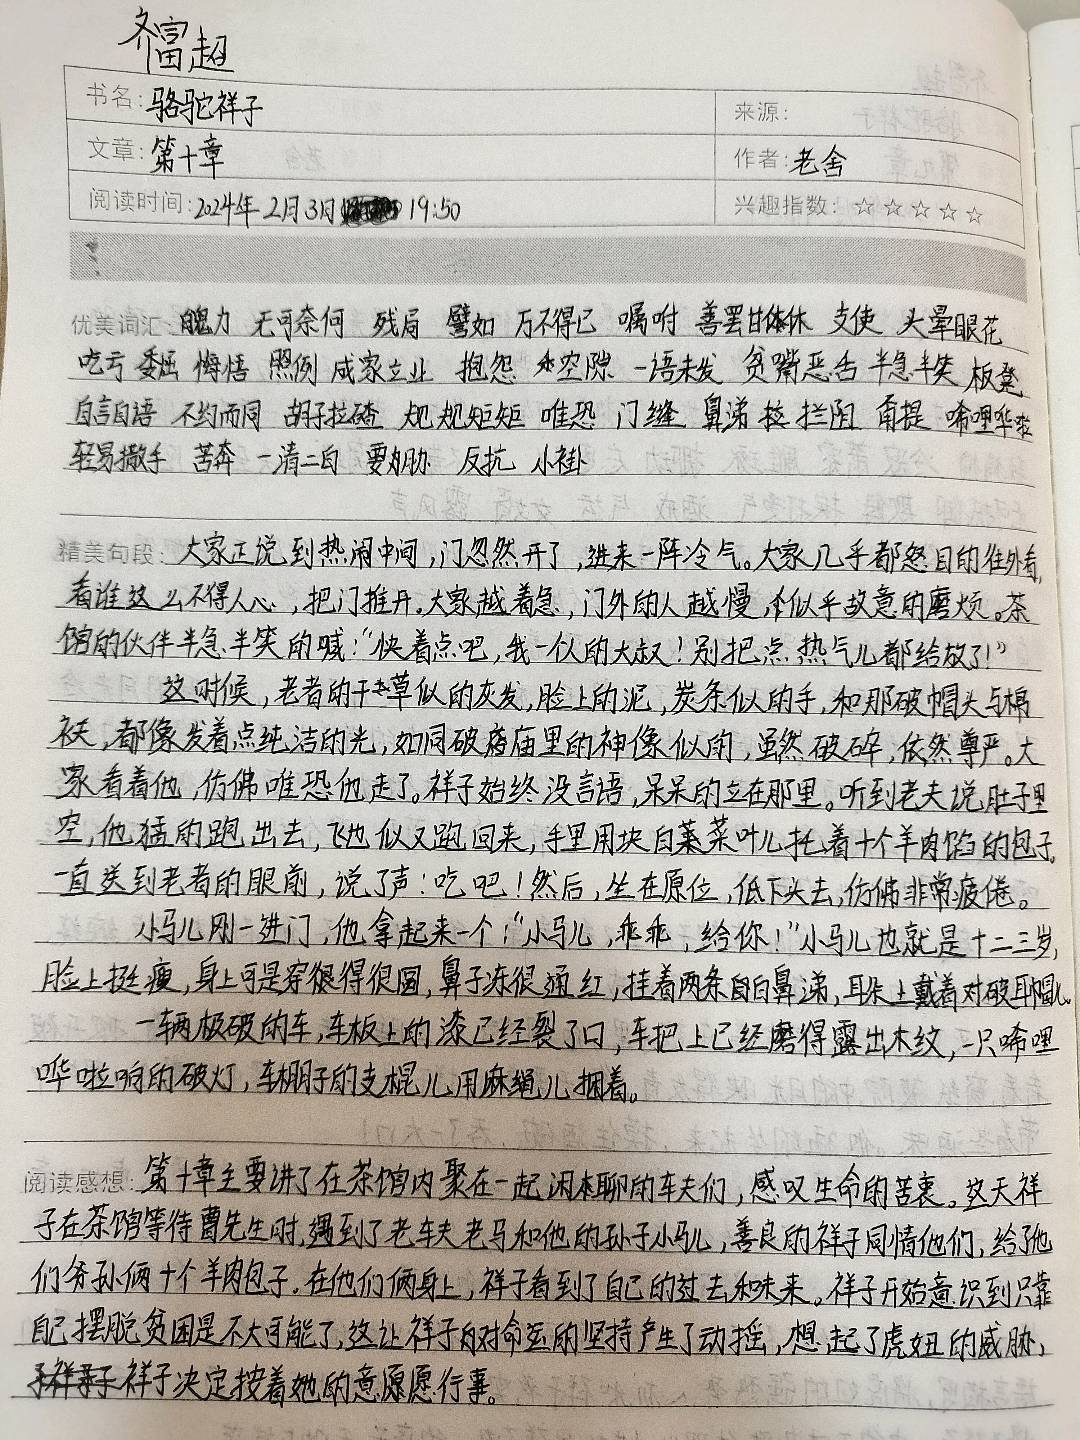 齐富超
书名: 骆驼祥子
来源:
文章: 第十章
作者: 老舍
阅读时间: 2024年2月3日 19:50
兴趣指数: ☆☆☆☆☆
优美词汇: 魄力 无可奈何 残局 譬如 万不得已 嘱咐 善罢甘休 支使 头晕眼花
吃亏 委屈 悔悟 照例 成家立业 抱怨 空隙 一语未发 贫嘴恶舌 半急半笑 板凳
自言自语 不约而同 胡子拉碴 规规矩矩 唯恐 门缝 鼻涕 拦阻 甭提 唏哩哗啦
轻易撒手 苦奔 一清二白 要胁 反抗 小褂
精美句段: 大家正说到热闹中间,门忽然开了,进来一阵冷气。大家几乎都怒目的往外看,
看谁这么不得人心,把门推开。大家越着急,门外的人越慢,似乎故意的磨烦。茶
馆的伙伴半急半笑的喊:“快着点吧,我一个人的大叔!别把点热气儿都给放了!”
这时候,老者的干草似的灰发,脸上的泥,炭条似的手,和那破帽头与棉
袄,都像发着点纯洁的光,如同破庙里的神像似的,虽然破碎,依然尊严。大
家看着他,仿佛唯恐他走了。祥子始终没言语,呆呆的立在那里。听到老夫说肚子里
空,他猛的跑出去,飞也似又跑回来,手里用块白菜叶儿托着十个羊肉馅的包子。
一直送到老者的眼前,说了声:吃吧!然后,坐在原位,低下头去,仿佛非常疲倦。
小马儿刚一进门,他拿起来一个:“小马儿,乖乖,给你!”小马儿也就是十二三岁,
脸上挺瘦,身上可是穿得很圆,鼻子冻很通红,挂着两条白鼻涕,耳朵上戴着对破耳帽儿。
一辆极破的车,车板上的漆已经裂了口,车把上已经磨得露出木纹,一只唏哩
哗啦响的破灯,车棚子的支棍儿用麻绳儿捆着。
阅读感想: 第十章主要讲了在茶馆内聚在一起闲聊的车夫们,感叹生命的苦衷。这天祥
子在茶馆等待曹先生时,遇到了老车夫老马和他的孙子小马儿,善良的祥子同情他们,给了他
们爷孙俩十个羊肉包子。在他们俩身上,祥子看到了自己的过去和味来。祥子开始意识到只靠
自己摆脱贫困是不大可能了,这让祥子对命运的坚持产生了动摇,想起了虎妞的威胁,
祥子决定按着她的意愿行事。